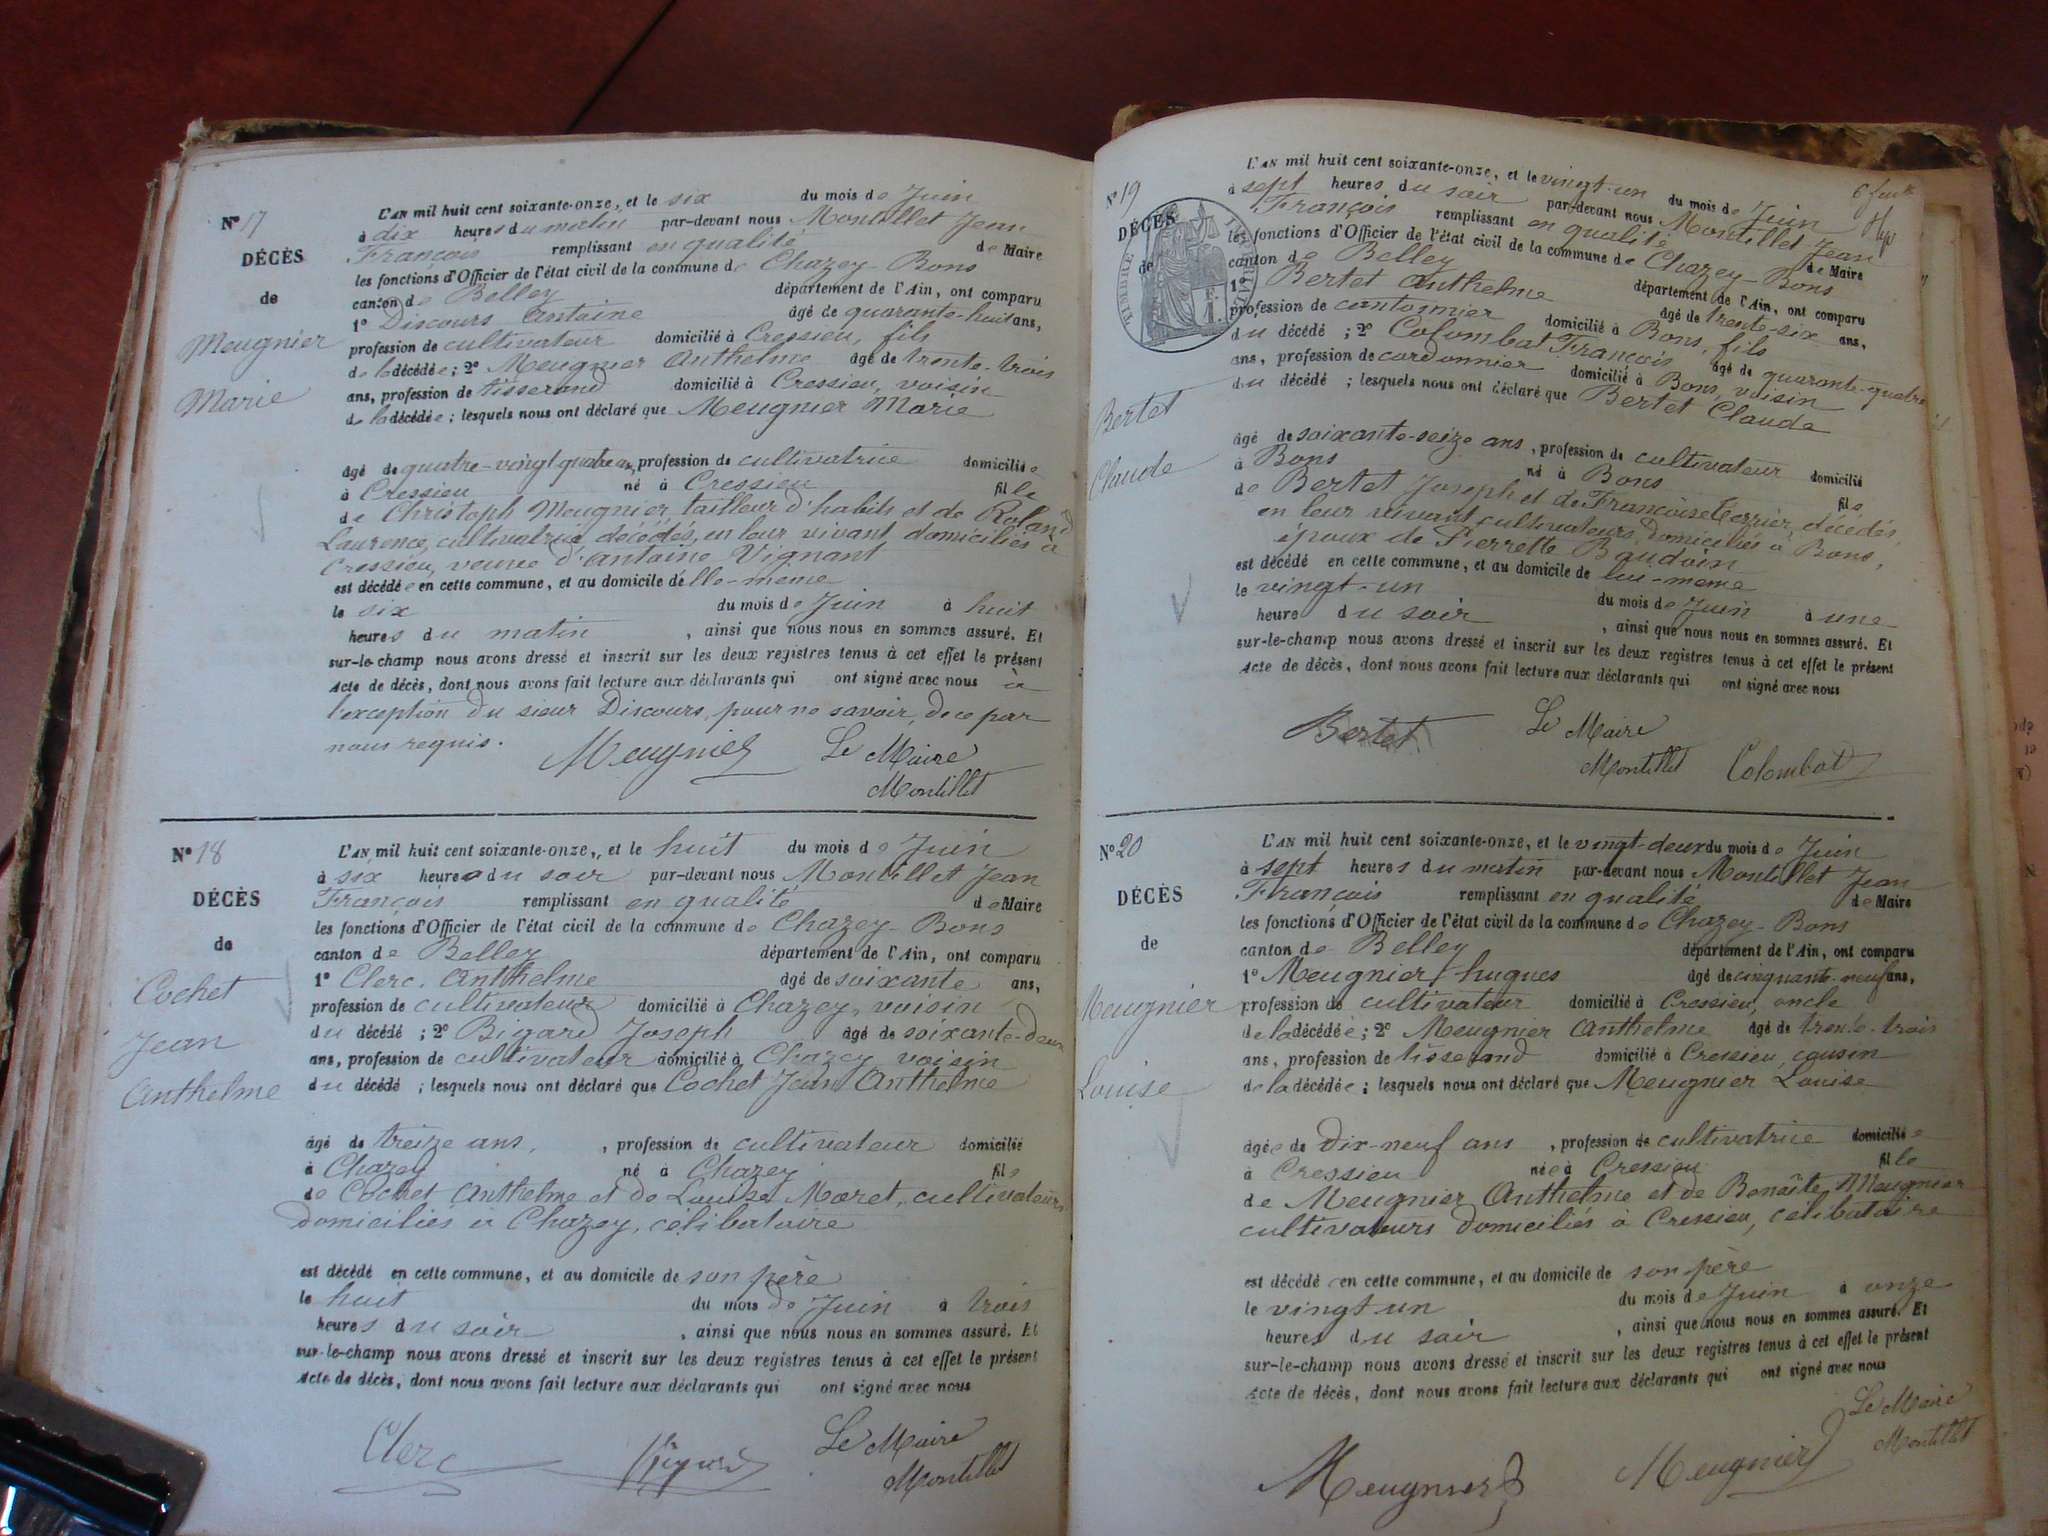 N° 17
DÉCÈS
de
Meugnier
Marie
L'AN mil huit cent soixante-onze, et le six du mois de Juin
à dix heures du matin par-devant nous Montillet Jean
François remplissant en qualité de Maire
les fonctions d'Officier de l'état civil de la commune de Chazey-Bons
canton de Belley département de l'Ain, ont comparu
1° Discours Antoine âgé de quarante-huit ans,
profession de cultivateur domicilié à Cressieu, fils
de la décédée ; 2° Meugnier Anthelme âgé de trente-trois
ans, profession de tisserand domicilié à Cressieu, voisin
de la décédée ; lesquels nous ont déclaré que Meugnier Marie
âgé de quatre-vingt quatre ans, profession de cultivatrice domiciliée
à Cressieu né à Cressieu fille
de Christoph Meugnier tailleur d'habits et de Roland
Laurence, cultivatrice décédés, en leur vivant domiciliés à
Cressieu, veuve d'Antoine Vignant
est décédée en cette commune, et au domicile d'elle-même
le six du mois de Juin à huit
heures du matin , ainsi que nous nous en sommes assuré. Et
sur-le-champ nous avons dressé et inscrit sur les deux registres tenus à cet effet le présent
Acte de décès, dont nous avons fait lecture aux déclarants qui ont signé avec nous à
l'exception du sieur Discours, pour ne savoir, de ce par
nous requis.
Meugnier Le Maire
Montillet
N° 18
DÉCÈS
de
Cochet
Jean
Anthelme
L'AN mil huit cent soixante-onze, et le huit du mois de Juin
à six heures du soir par-devant nous Montillet Jean
François remplissant en qualité de Maire
les fonctions d'Officier de l'état civil de la commune de Chazey-Bons
canton de Belley département de l'Ain, ont comparu
1° Clerc Anthelme âgé de soixante ans,
profession de cultivateur domicilié à Chazey, voisin
du décédé ; 2° Bigard Joseph âgé de soixante-deux
ans, profession de cultivateur domicilié à Chazey voisin
du décédé ; lesquels nous ont déclaré que Cochet Jean Anthelme
âgé de treize ans, , profession de cultivateur domicilié
à Chazey né à Chazey fils
de Cochet Anthelme et de Louise Moret, cultivateurs
domiciliés à Chazey, célibataire
est décédé en cette commune, et au domicile de son père
le huit du mois de Juin à trois
heures du soir , ainsi que nous nous en sommes assuré. Et
sur-le-champ nous avons dressé et inscrit sur les deux registres tenus à cet effet le présent
Acte de décès, dont nous avons fait lecture aux déclarants qui ont signé avec nous
Clerc Bigard Le Maire
Montillet
6 feuil
N° 19
DÉCÈS
de
TIMBRE
Bertet
Claude
L'AN mil huit cent soixante-onze, et le vingt-un du mois de Juin
à sept heures du soir par-devant nous Montillet Jean
François remplissant en qualité de Maire
les fonctions d'Officier de l'état civil de la commune de Chazey-Bons
canton de Belley département de l'Ain, ont comparu
1° Bertet Anthelme âgé de trente-six ans,
profession de cantonnier domicilié à Bons, fils
du décédé ; 2° Colombat François âgé de quarante-quatre
ans, profession de cordonnier domicilié à Bons, voisin
du décédé ; lesquels nous ont déclaré que Bertet Claude
âgé de soixante-seize ans, profession de cultivateur domicilié
à Bons né à Bons fils
de Bertet Joseph et de Françoise Terrier, décédés,
en leur vivant cultivateurs, domiciliés à Bons,
époux de Pierrette Baudoin
est décédé en cette commune, et au domicile de lui-même
le vingt-un du mois de Juin à une
heure du soir , ainsi que nous nous en sommes assuré. Et
sur-le-champ nous avons dressé et inscrit sur les deux registres tenus à cet effet le présent
Acte de décès, dont nous avons fait lecture aux déclarants qui ont signé avec nous
Bertet Le Maire
Montillet Colombat
N° 20
DÉCÈS
de
Meugnier
Louise
L'AN mil huit cent soixante-onze, et le vingt-deux du mois de Juin
à sept heures du matin par-devant nous Montillet Jean
François remplissant en qualité de Maire
les fonctions d'Officier de l'état civil de la commune de Chazey-Bons
canton de Belley département de l'Ain, ont comparu
1° Meugnier hugues âgé de cinquante-neuf ans,
profession de cultivateur domicilié à Cressieu, oncle
de la décédée ; 2° Meugnier Anthelme âgé de trente-trois
ans, profession de tisserand domicilié à Cressieu, cousin
de la décédée ; lesquels nous ont déclaré que Meugnier Louise
âgée de dix-neuf ans , profession de cultivatrice domiciliée
à Cressieu née à Cressieu fille
de Meugnier Anthelme et de Benoîte Meugnier
cultivateurs domiciliés à Cressieu, célibataire
est décédé en cette commune, et au domicile de son père
le vingt-un du mois de Juin à onze
heures du soir , ainsi que nous nous en sommes assuré. Et
sur-le-champ nous avons dressé et inscrit sur les deux registres tenus à cet effet le présent
Acte de décès, dont nous avons fait lecture aux déclarants qui ont signé avec nous
Le Maire
Meugnier Meugnier Montillet